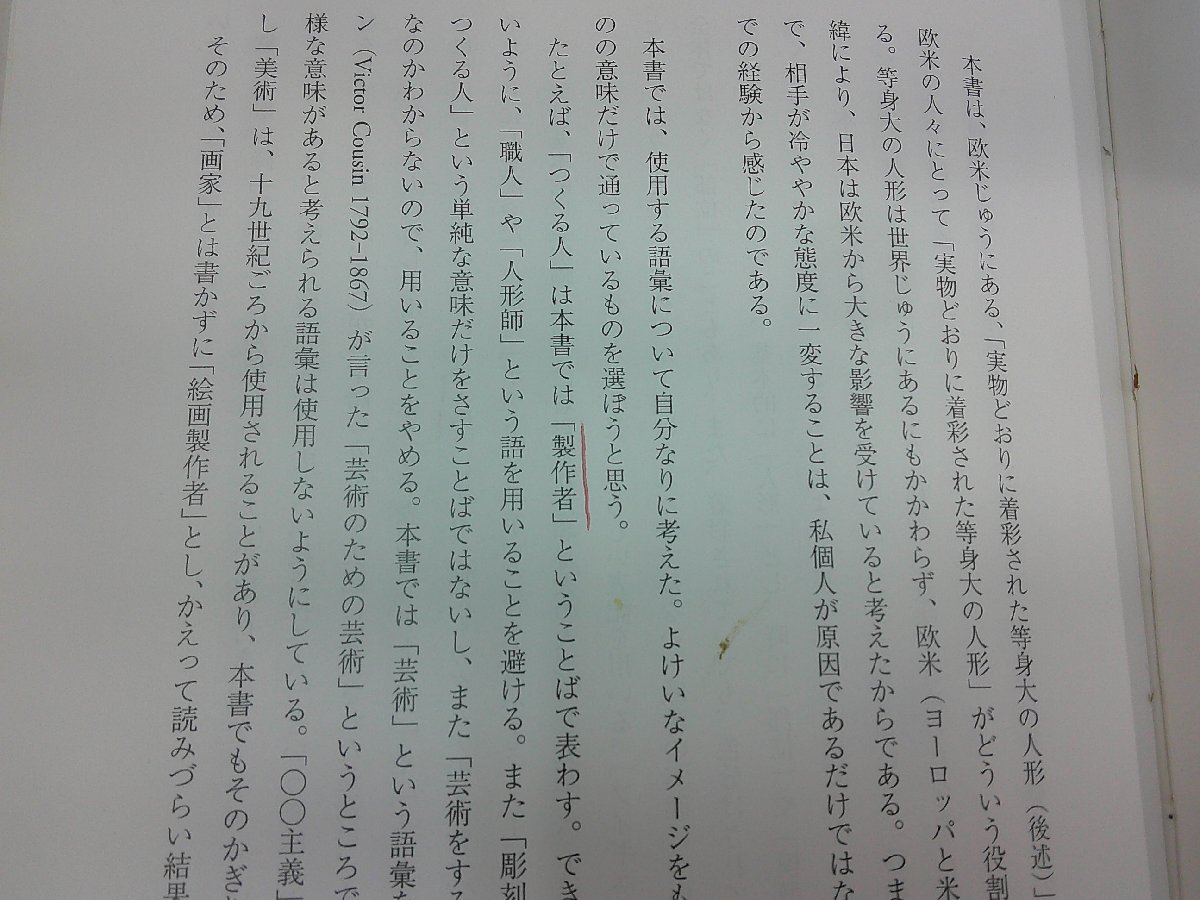 本書は、欧米じゅうにある、「実物どおりに着彩された等身大の人形（後述）」
欧米の人々にとって「実物どおりに着彩された等身大の人形」がどういう役割
る。等身大の人形は世界じゅうにあるにもかかわらず、欧米（ヨーロッパと米
緯により、日本は欧米から大きな影響を受けていると考えたからである。つま
で、相手が冷ややかな態度に一変することは、私個人が原因であるだけではな
での経験から感じたのである。
本書では、使用する語彙について自分なりに考えた。よけいなイメージをも
のの意味だけで通っているものを選ぼうと思う。
たとえば、「つくる人」は本書では「製作者」ということばで表わす。でき
いように、「職人」や「人形師」という語を用いることを避ける。また「彫刻
つくる人」という単純な意味だけをさすことばではないし、また「芸術をする
なのかわからないので、用いることをやめる。本書では「芸術」という語彙を
ン（Victor Cousin 1792–1867）が言った「芸術のための芸術」というところで
様な意味があると考えられる語彙は使用しないようにしている。「〇〇主義」
し「美術」は、十九世紀ごろから使用されることがあり、本書でもそのかぎり
そのため、「画家」とは書かずに「絵画製作者」とし、かえって読みづらい結果